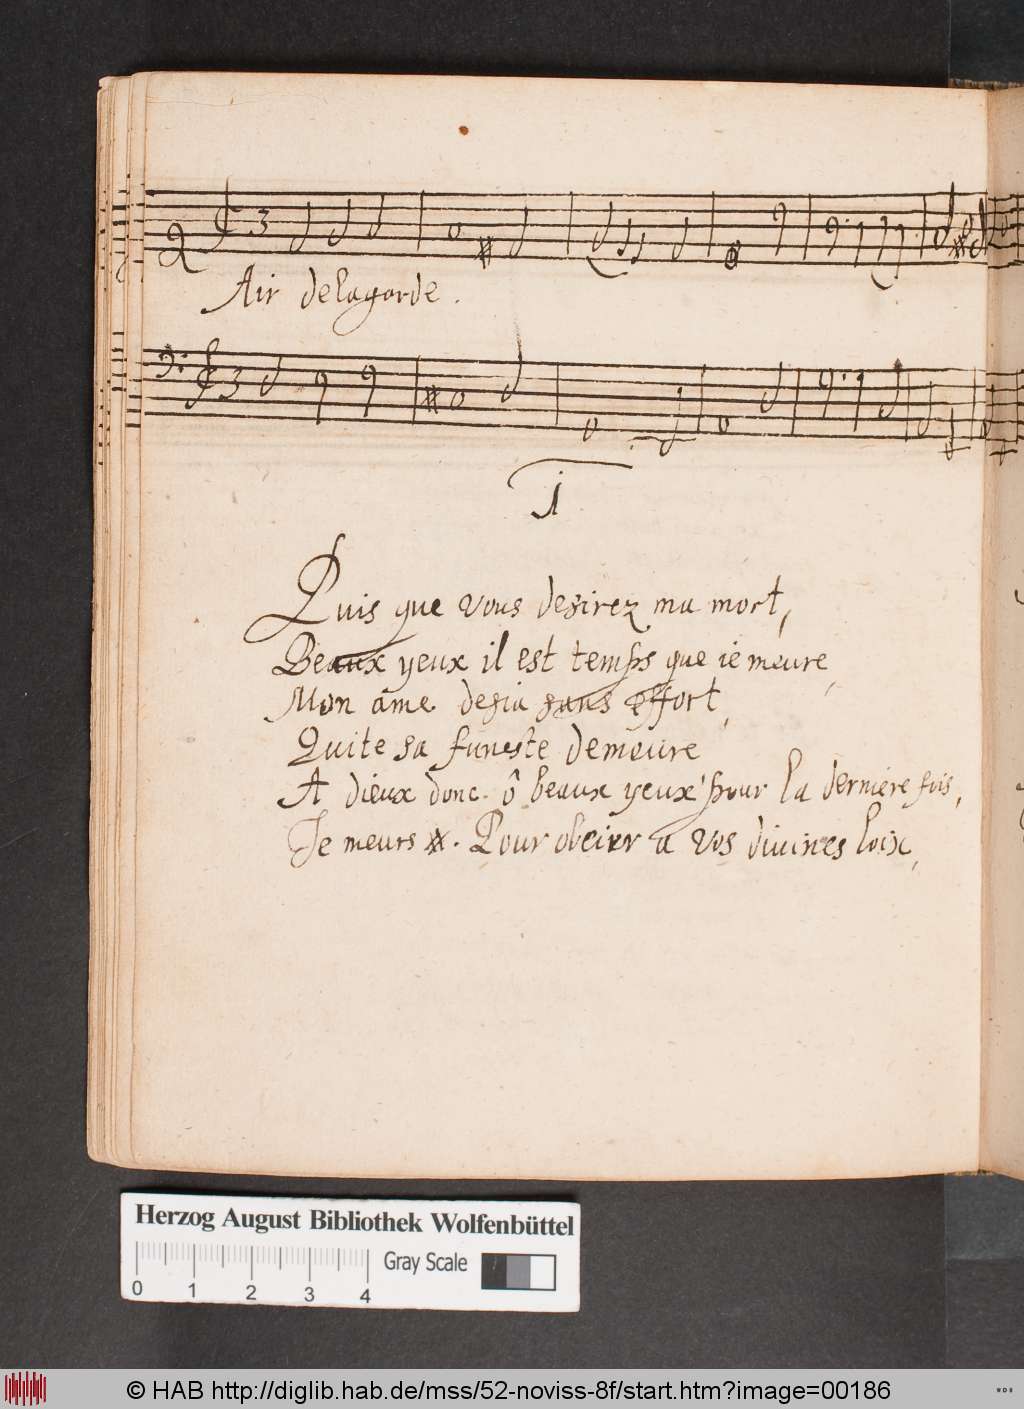 Air delagarde.
1
Puis que vous desirez ma mort,
Beaux yeux il est temps que ie meure,
Mon ame desia sans effort,
Quite sa funeste demeure
A dieux donc ô beaux yeux pour la derniere fois,
Je meurs ※. Pour obeirr a vos diuines loix,
Herzog August Bibliothek Wolfenbüttel
Gray Scale
0 1 2 3 4
© HAB http://diglib.hab.de/mss/52-noviss-8f/start.htm?image=00186